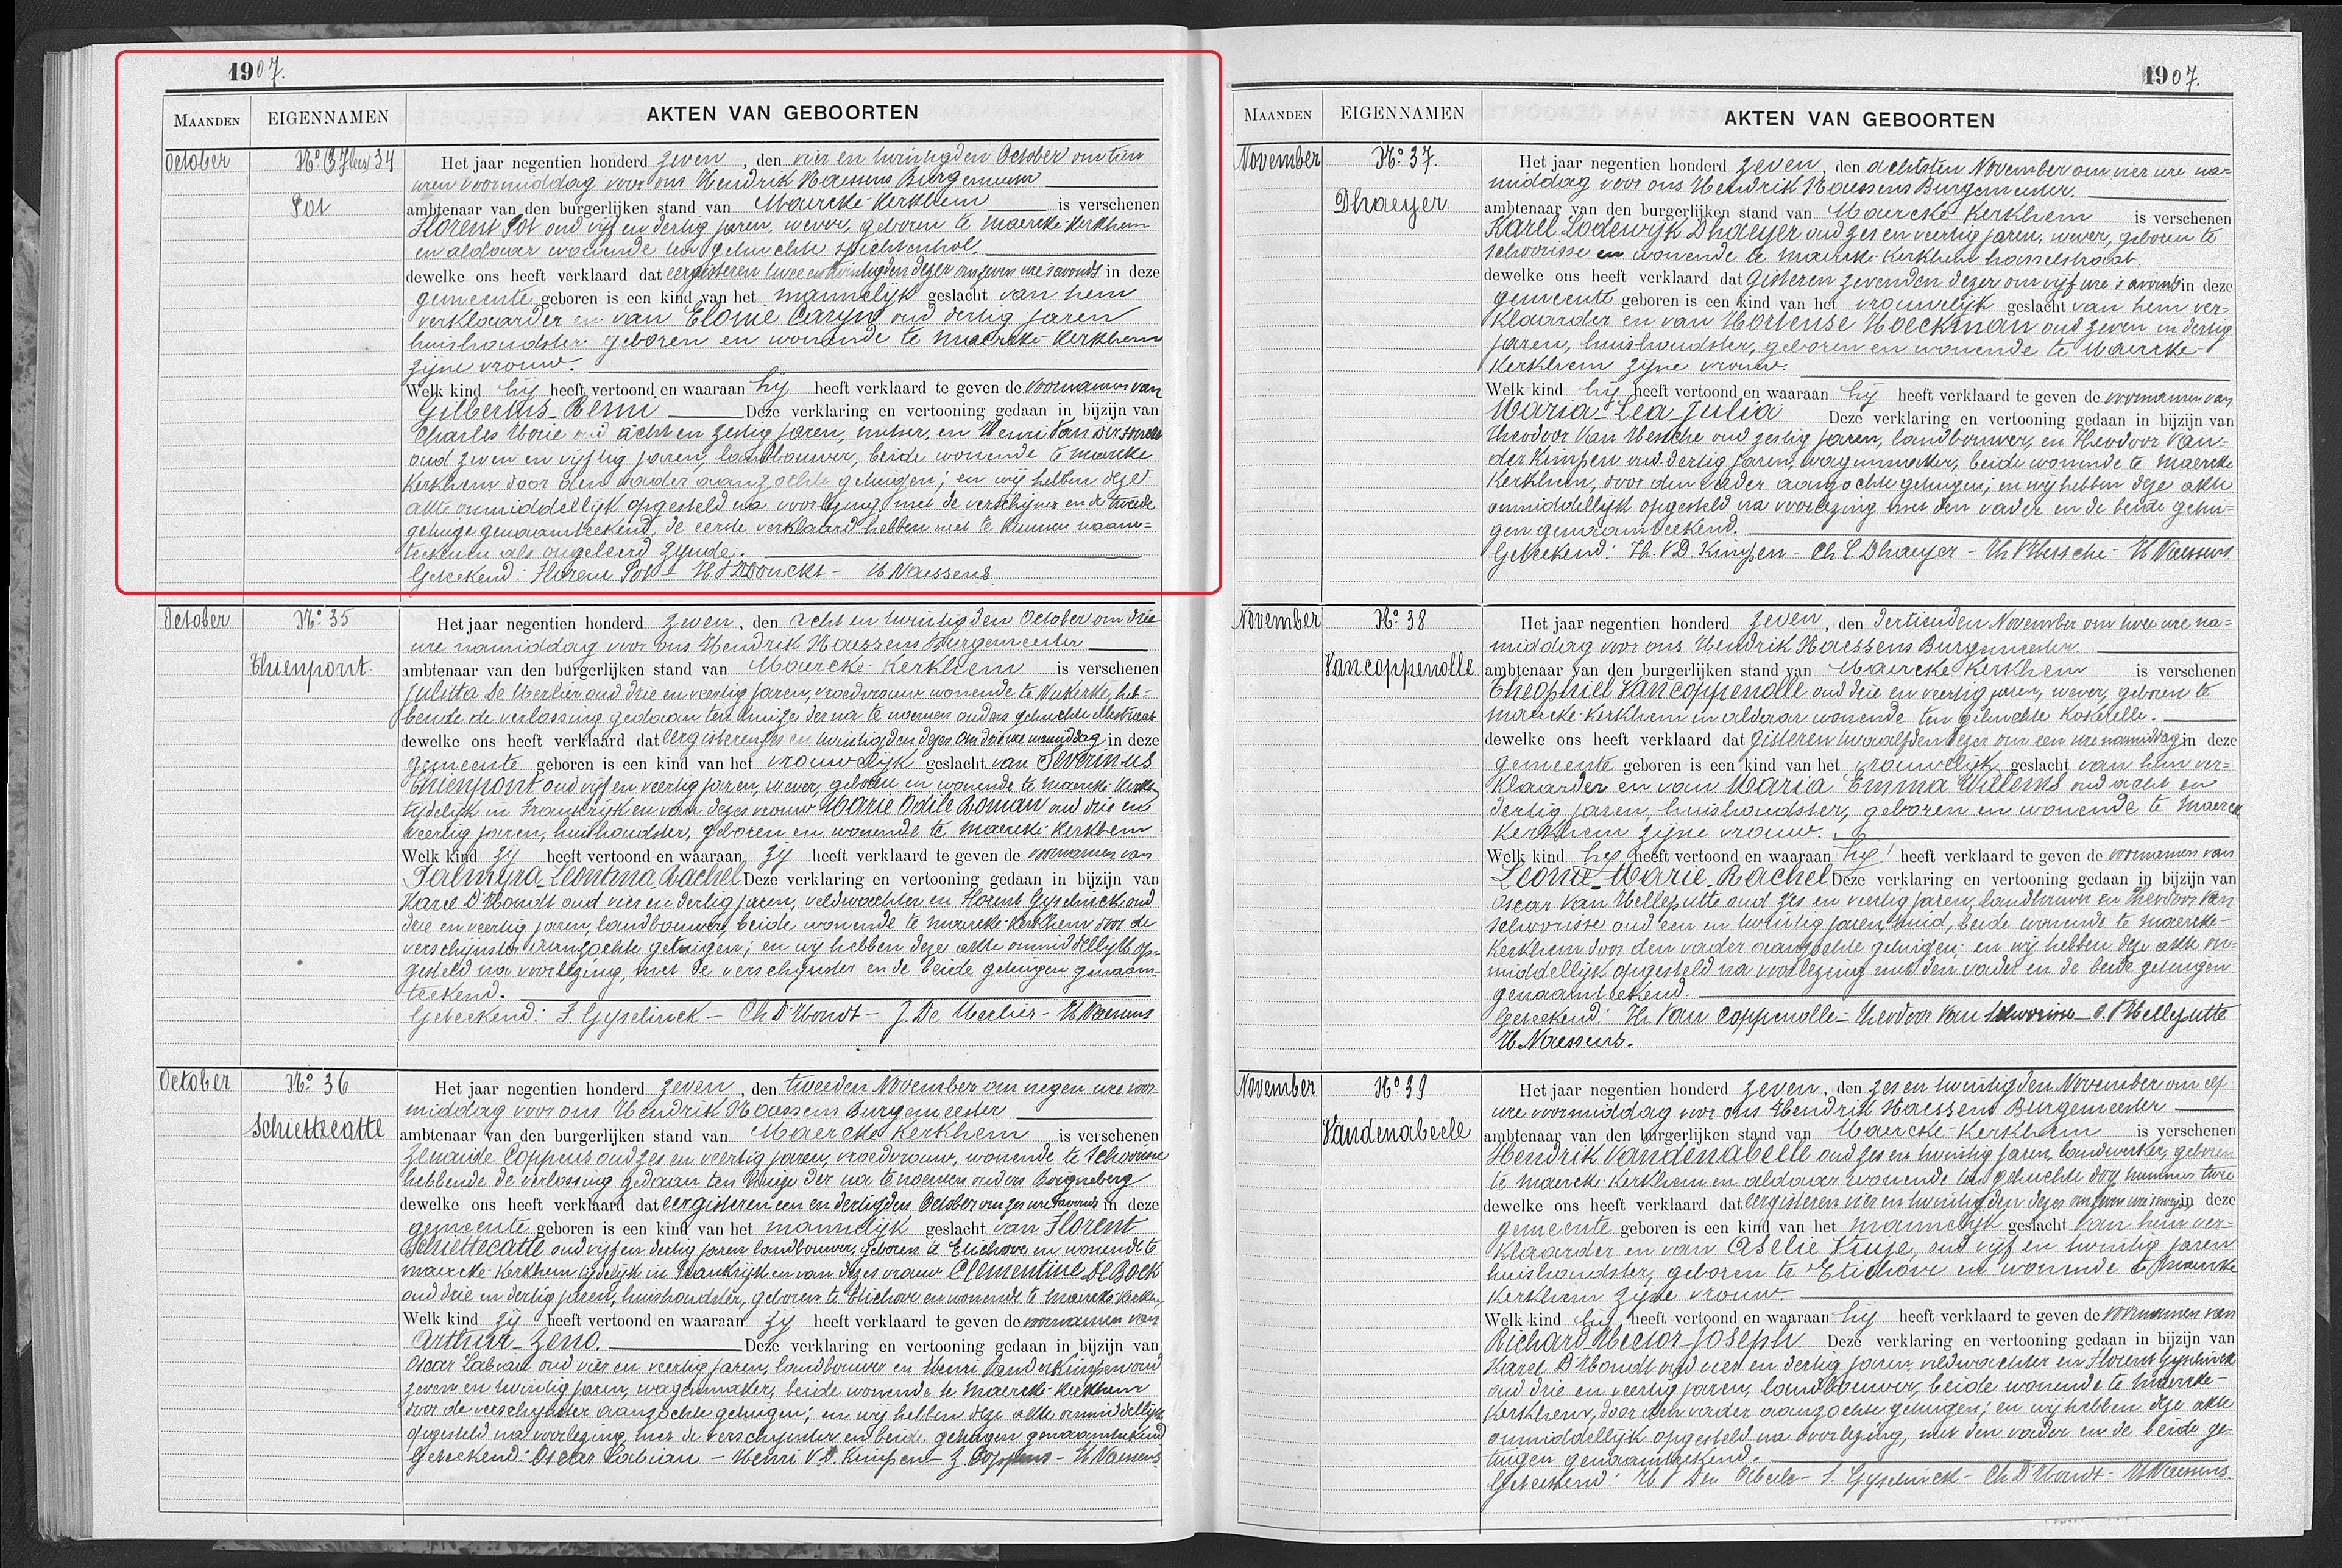 1907.
MAANDEN EIGENNAMEN AKTEN VAN GEBOORTEN
October Nº 34 Het jaar negentien honderd zeven, den vier en twintigden October om tien
uren voormiddag voor ons Hendrik Naessens Burgemeester
Pot ambtenaar van den burgerlijken stand van Maercke-Kerkhem is verschenen
Florent Pot oud vijf en dertig jaren, wever, geboren te Maercke-Kerkhem
en aldaar wonende ten gehuchte
dewelke ons heeft verklaard dat eergisteren twee en twintigden dezer om zeven ure 's avonds in deze
gemeente geboren is een kind van het mannelijk geslacht van hem
verklaarder en van Elodie Caryn oud dertig jaren
huishoudster geboren en wonende te Maercke-Kerkhem
zijne vrouw.
Welk kind hij heeft vertoond en waaraan hij heeft verklaard te geven de voornamen van
Gilbertus-Remi Deze verklaring en vertooning gedaan in bijzijn van
Charles oud acht en zestig jaren, en Henri
oud zeven en vijftig jaren, landbouwer, beide wonende te Maercke
Kerkhem door den vader aanzochte getuigen; en wij hebben deze
akte onmiddellijk opgesteld na voorlezing met de verschijner en de tweede
getuige genaamteekend, de eerste verklaard hebbende niet te kunnen naam=
teekenen als ongeleerd zijnde.
Geteekend: Florent Pot - H. - H Naessens.
October Nº 35 Het jaar negentien honderd zeven, den acht en twintigden October om drie
ure namiddag voor ons Hendrik Naessens Burgemeester
Thienpont ambtenaar van den burgerlijken stand van Maercke-Kerkhem is verschenen
Julitta De Merlier oud drie en veertig jaren, vroedvrouw wonende te Nukerke, heb-
bende de verlossing gedaan ten huize der na te noemen ouders gehuchte
dewelke ons heeft verklaard dat eergisteren zes en twintigden dezer om drie ure namiddag in deze
gemeente geboren is een kind van het vrouwelijk geslacht van Severinus
Thienpont oud vijf en veertig jaren, wever, geboren en wonende te Maercke-Kerkhem
tijdelijk in Frankrijk en van dezes vrouw Marie Odile Roman oud drie en
veertig jaren, huishoudster, geboren en wonende te Maercke-Kerkhem
Welk kind zij heeft vertoond en waaraan zij heeft verklaard te geven de voornamen van
Palmyra-Leontina-Rachel Deze verklaring en vertooning gedaan in bijzijn van
Karel D'Hondt oud vier en dertig jaren, veldwachter en Florent Gyselinck oud
drie en veertig jaren, landbouwer, beide wonende te Maercke-Kerkhem door de
verschijnster aanzochte getuigen; en wij hebben deze akte onmiddellijk op=
gesteld na voorlezing, met de verschijnster en de beide getuigen genaam-
teekend.
Geteekend: F. Gyselinck - Ch D'Hondt - J. De Merlier - H Naessens
October Nº 36 Het jaar negentien honderd zeven, den tweeden November om negen ure voor-
middag voor ons Hendrik Naessens Burgemeester
Schiettecatte ambtenaar van den burgerlijken stand van Maercke-Kerkhem is verschenen
Zenaide Coppens oud zes en veertig jaren, vroedvrouw, wonende te Schoorisse
hebbende de verlossing gedaan ten huize der na te noemen ouders
dewelke ons heeft verklaard dat eergisteren een en dertigden October om zes ure 's avonds in deze
gemeente geboren is een kind van het mannelijk geslacht van Florent
Schiettecatte oud vijf en dertig jaren landbouwer, geboren te Etichove en wonende te
Maercke-Kerkhem tijdelijk in Frankrijk en van dezes vrouw Clementine De Bock
oud drie en dertig jaren, huishoudster, geboren te Etichove en wonende te Maercke-Kerkhem
Welk kind zij heeft vertoond en waaraan zij heeft verklaard te geven de voornamen van
Arthur-Zeno. Deze verklaring en vertooning gedaan in bijzijn van
Oscar Labiau oud vier en veertig jaren, landbouwer en Henri Vanderkimpen oud
zeven en twintig jaren, wagenmaker, beide wonende te Maercke-Kerkhem
door de verschijnster aanzochte getuigen; en wij hebben deze akte onmiddellijk
opgesteld na voorlezing, met de verschijnster en beide getuigen genaamteekend
Geteekend: Oscar Labiau - Henri V.D. Kimpen - Z Coppens - H Naessens
1907.
MAANDEN EIGENNAMEN AKTEN VAN GEBOORTEN
November Nº 37. Het jaar negentien honderd zeven, den achtsten November om vier ure na-
middag voor ons Hendrik Naessens Burgemeester.
Dhaeyer ambtenaar van den burgerlijken stand van Maercke-Kerkhem is verschenen
Karel Lodewijk Dhaeyer oud zes en veertig jaren, wever, geboren te
Schoorisse en wonende te Maercke-Kerkhem hasselstraat.
dewelke ons heeft verklaard dat gisteren zevenden dezer om vijf ure 's avonds in deze
gemeente geboren is een kind van het vrouwelijk geslacht van hem ver=
klaarder en van Hortense Hoeckman oud zeven en dertig
jaren, huishoudster, geboren en wonende te Maercke-
Kerkhem zijne vrouw.
Welk kind hij heeft vertoond en waaraan hij heeft verklaard te geven de voornamen van
Maria-Lea Julia Deze verklaring en vertooning gedaan in bijzijn van
Theodoor Van Wessche oud zestig jaren, landbouwer, en Theodoor Van-
der Kimpen oud dertig jaren, wagenmaker, beide wonende te Maercke
Kerkhem, door den vader aanzochte getuigen; en wij hebben deze akte
onmiddellijk opgesteld na voorlezing met den vader en de beide getui-
gen genaamteekend.
Geteekend: Th. V.D. Kimpen - Ch L. Dhaeyer - Th V Wessche - H Naessens.
November Nº 38 Het jaar negentien honderd zeven, den dertienden November om twee ure na=
middag voor ons Hendrik Naessens Burgemeester.
Vancoppenolle ambtenaar van den burgerlijken stand van Maercke-Kerkhem is verschenen
Theophiel Vancoppenolle oud drie en veertig jaren, wever, geboren te
Maercke-Kerkhem en aldaar wonende ten gehuchte Kokerelle.
dewelke ons heeft verklaard dat gisteren twaalfden dezer om een ure namiddag in deze
gemeente geboren is een kind van het vrouwelijk geslacht van hem ver=
klaarder en van Maria Emma Willems oud acht en
dertig jaren, huishoudster, geboren en wonende te Maercke
Kerkhem zijne vrouw.
Welk kind hij heeft vertoond en waaraan hij heeft verklaard te geven de voornamen van
Leonie-Marie-Rachel Deze verklaring en vertooning gedaan in bijzijn van
Oscar Van Welleputte oud zes en veertig jaren, landbouwer en Theodoor Van
Schoorisse oud een en twintig jaren, smid, beide wonende te Maercke-
Kerkhem door den vader aanzochte getuigen; en wij hebben deze akte on=
middellijk opgesteld na voorlezing met den vader en de beide getuigen
genaamteekend.
Geteekend: Th. Van Coppenolle - Theodoor Van Schoorisse - O. V Welleputte
H Naessens.
November Nº 39 Het jaar negentien honderd zeven, den zes en twintigden November om elf
ure voormiddag voor ons Hendrik Naessens Burgemeester
Vandenabeele ambtenaar van den burgerlijken stand van Maercke-Kerkhem is verschenen
Hendrik Vandenabeele oud zes en twintig jaren, landwerker, geboren
te Maercke-Kerkhem en aldaar wonende ten gehuchte dorp nummer twee
dewelke ons heeft verklaard dat eergisteren vier en twintigden dezer om zeven ure 's morgens in deze
gemeente geboren is een kind van het mannelijk geslacht van hem ver=
klaarder en van oud vijf en twintig jaren
huishoudster, geboren te Etichove en wonende te Maercke
Kerkhem zijne vrouw.
Welk kind hij heeft vertoond en waaraan hij heeft verklaard te geven de voornamen van
Richard Hector Joseph Deze verklaring en vertooning gedaan in bijzijn van
Karel D'Hondt oud vier en dertig jaren, veldwachter en Florent Gyselinck
oud drie en veertig jaren, landbouwer, beide wonende te Maercke-
Kerkhem, door den vader aanzochte getuigen; en wij hebben deze akte
onmiddellijk opgesteld na voorlezing, met den vader en de beide ge-
tuigen genaamteekend.
Geteekend: H V Den Abeele - F. Gyselinck - Ch D'Hondt - H Naessens.